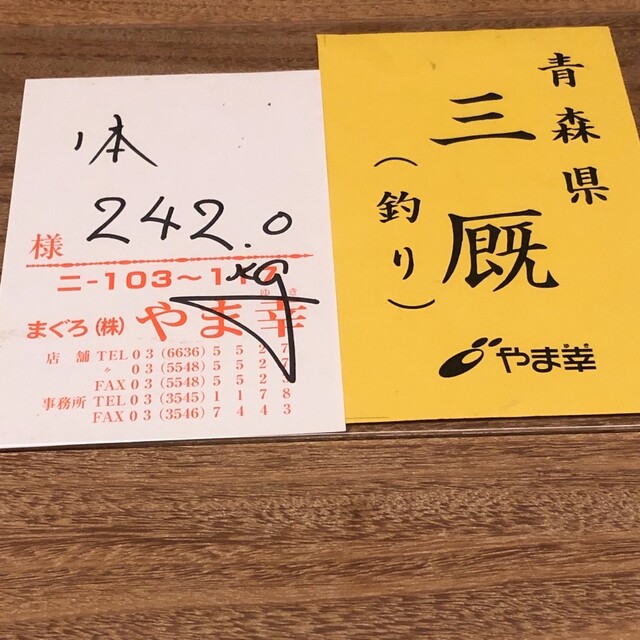 1本
242.0
kg
様
二-103～117
まぐろ(株)やま幸
ゆき
店舗 TEL 03(6636)5527
〃 03(5548)552
FAX 03(5548)5525
事務所 TEL 03(3545)1178
FAX 03(3546)7443
青森県
三厩
(釣り)
やま幸